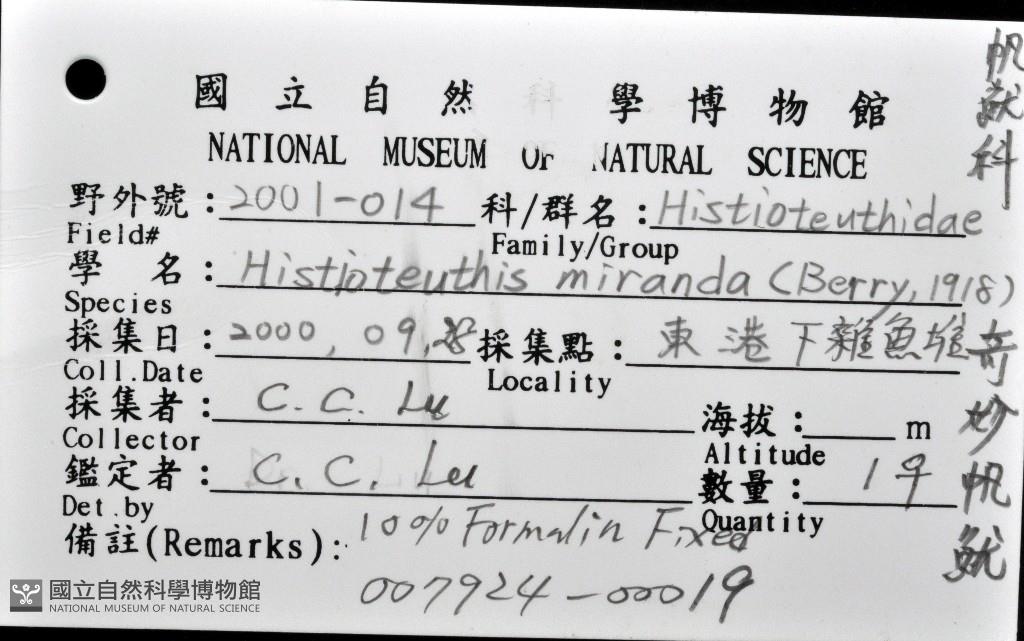 國立自然 學博物館
NATIONAL MUSEUM OF NATURAL SCIENCE
野外號：2001-014 科/群名：Histioteuthidae
Field# Family/Group
學 名：Histioteuthis miranda (Berry, 1918)
Species
採集日：2000, 09, 採集點：東港下雜魚堆
Coll.Date Locality
採集者：C. C. Lu 海拔： m
Collector Altitude
鑑定者：C. C. Lu 數量：1♀
Det.by Quantity
備註(Remarks)：10% Formalin Fixed
007924-00019
帆魷科
奇妙帆魷
國立自然科學博物館
NATIONAL MUSEUM OF NATURAL SCIENCE